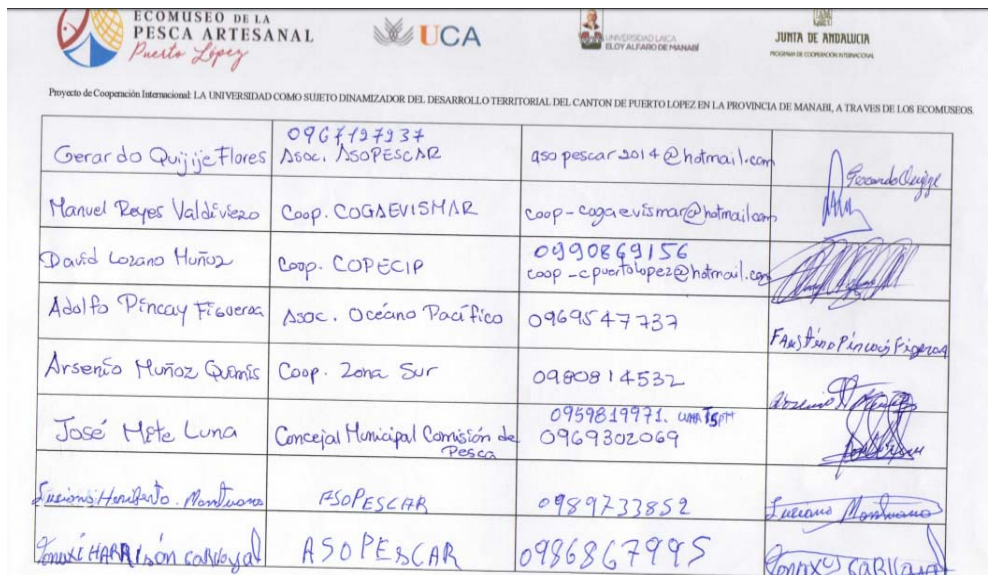 ECOMUSEO DE LA
PESCA ARTESANAL
Puerto López
UCA
UNIVERSIDAD LAICA
ELOY ALFARO DE MANABÍ
JUNTA DE ANDALUCIA
PROGRAMA DE COOPERACIÓN INTERNACIONAL
Proyecto de Cooperación Internacional: LA UNIVERSIDAD COMO SUJETO DINAMIZADOR DEL DESARROLLO TERRITORIAL DEL CANTON DE PUERTO LOPEZ EN LA PROVINCIA DE MANABI, A TRAVES DE LOS ECOMUSEOS.
0967197937
Gerardo Quijije Flores Asoc. ASOPESCAR asopescar2014@hotmail.com Gerardo Quijije
Manuel Reyes Valdiviezo Coop. COGAEVISMAR coop-cogaevismar@hotmail.com
0990869156
David Lozano Muñoz Coop. COPECIP coop-cpuertolopez@hotmail.com
Adolfo Pincay Figueroa Asoc. Océano Pacífico 0969547737
Faustino Pincay Figueroa
Arsenio Muñoz Quimis Coop. Zona Sur 0980814532
0959819971.
José Mite Luna Concejal Municipal Comisión de 0969302069
Pesca
Luciano Heriberto Montuano ASOPESCAR 0989733852 Luciano Montuano
HARRISON CARVAJAL ASOPESCAR 0986867995